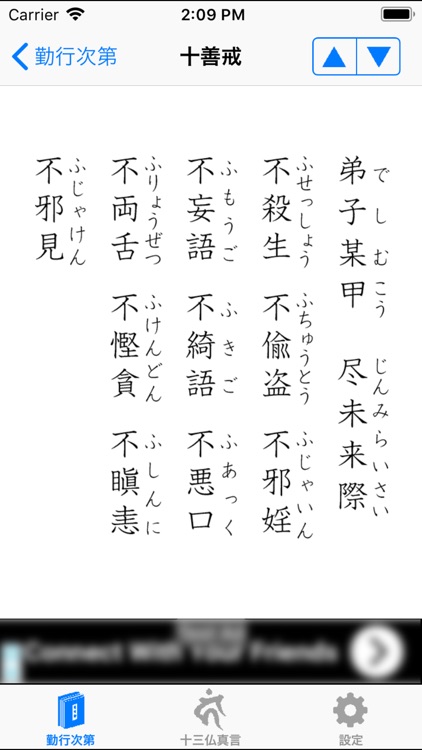 Carrier 2:09 PM
勤行次第
十善戒
弟子某甲 尽未来際
でしむこう じんみらいさい
不殺生 不偸盗 不邪婬
ふせっしょう ふちゅうとう ふじゃいん
不妄語 不綺語 不悪口
ふもうご ふきご ふあっく
不両舌 不慳貪 不瞋恚
ふりょうぜつ ふけんどん ふしんに
不邪見
ふじゃけん
Connect With Your Friends
勤行次第
十三仏真言
設定